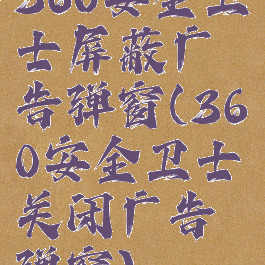 360安全卫
士屏蔽广
告弹窗(36
0安全卫士
关闭广告
弹窗)